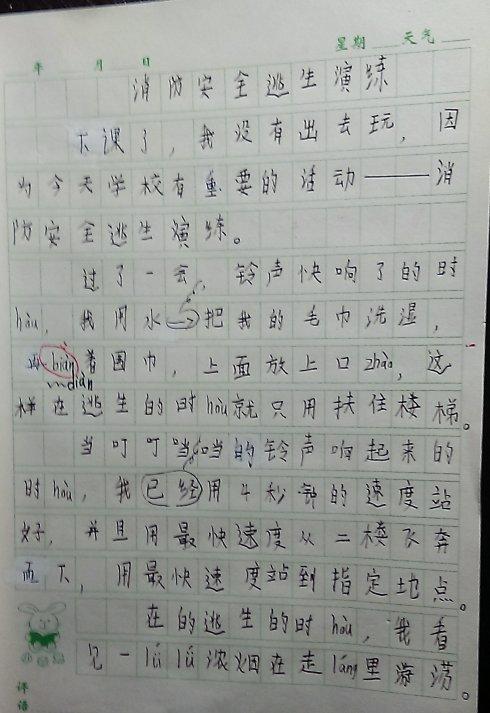 星期 天气
年 月 日
消防安全逃生演练
下课了，我没有出去玩，因
为今天学校有重要的活动——消
防安全逃生演练。
过了一会，铃声快响了的时
hòu，我用水把我的毛巾洗湿，
biān着围巾，上面放上口zhào，这
diàn
样在逃生的时hòu就只用扶住楼梯。
当叮叮当当的铃声响起来的
时hòu，我已经用4秒钟的速度站
好，并且用最快速度从二楼飞奔
而下，用最快速度站到指定地点。
在的逃生的时hòu，我看
见一lǚ lǚ浓烟在走láng里游荡。
评语